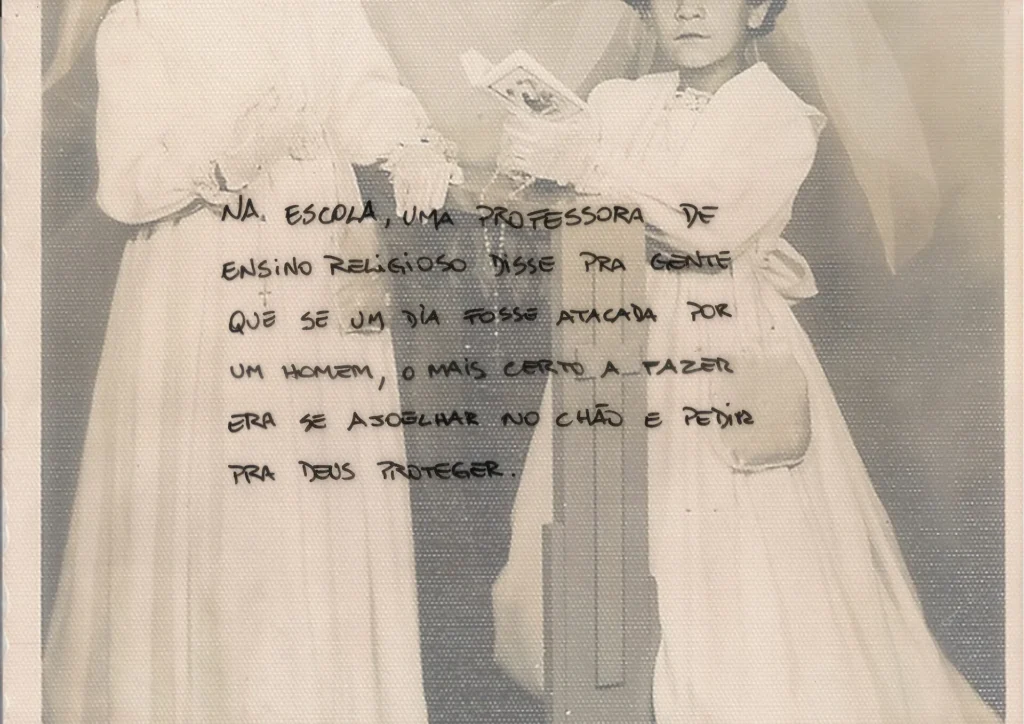 NA ESCOLA, UMA PROFESSORA DE
ENSINO RELIGIOSO DISSE PRA GENTE
QUE SE UM DIA FOSSE ATACADA POR
UM HOMEM, O MAIS CERTO A FAZER
ERA SE AJOELHAR NO CHÃO E PEDIR
PRA DEUS PROTEGER.